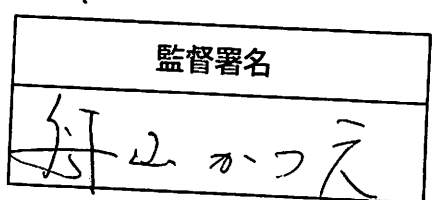 監督署名
舟山 かつえ